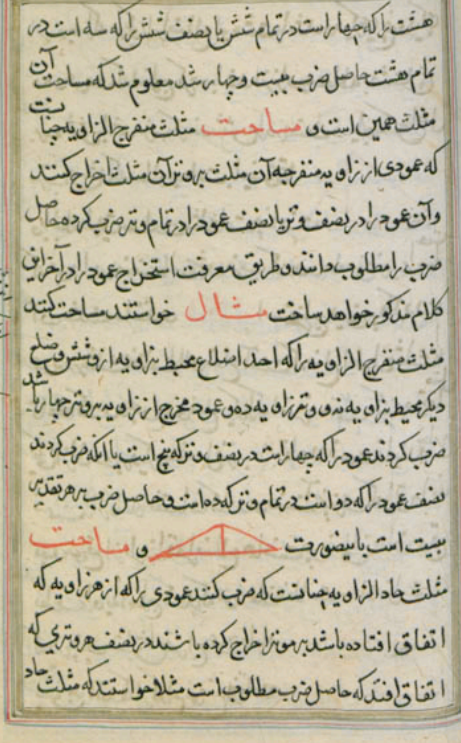 هشت را که چهار است در تمام شش یا نصف شش را که سه است در
تمام هشت حاصل ضرب بیست و چهار شد معلوم شد که مساحت آن
مثلث همین است و مساحت مثلث منفرج الزاویه چنانست
که عمودی از زاویه منفرجه آن مثلث بر وتر آن مثلث اخراج کنند
و آن عمود را در نصف وتر یا نصف عمود را در تمام وتر ضرب کرده حاصل
ضرب را مطلوب دانند و طریق معرفت استخراج عمود را در آخر این
کلام مذکور خواهد ساخت مثال خواستند مساحت کنند
مثلث منفرج الزاویه را که احد اضلاع محیط بزاویه از و شش و ضلع
دیگر محیط بزاویه نه و وتر زاویه ده و عمود مخرج از زاویه بر وتر چهار باشد
ضرب کردند عمود را که چهار است در نصف وتر که پنج است یا آنکه ضرب کردند
نصف عمود را که دو است در تمام وتر که ده است و حاصل ضرب بر هر تقدیر
بیست است باینصورت و مساحت
مثلث حاد الزاویه چنانست که ضرب کنند عمودی را که از هر زاویه که
اتفاق افتاده باشد بر موتر اخراج کرده باشند در نصف هر وتری که
اتفاق افتد که حاصل ضرب مطلوب است مثلا خواستند که مثلث حاد